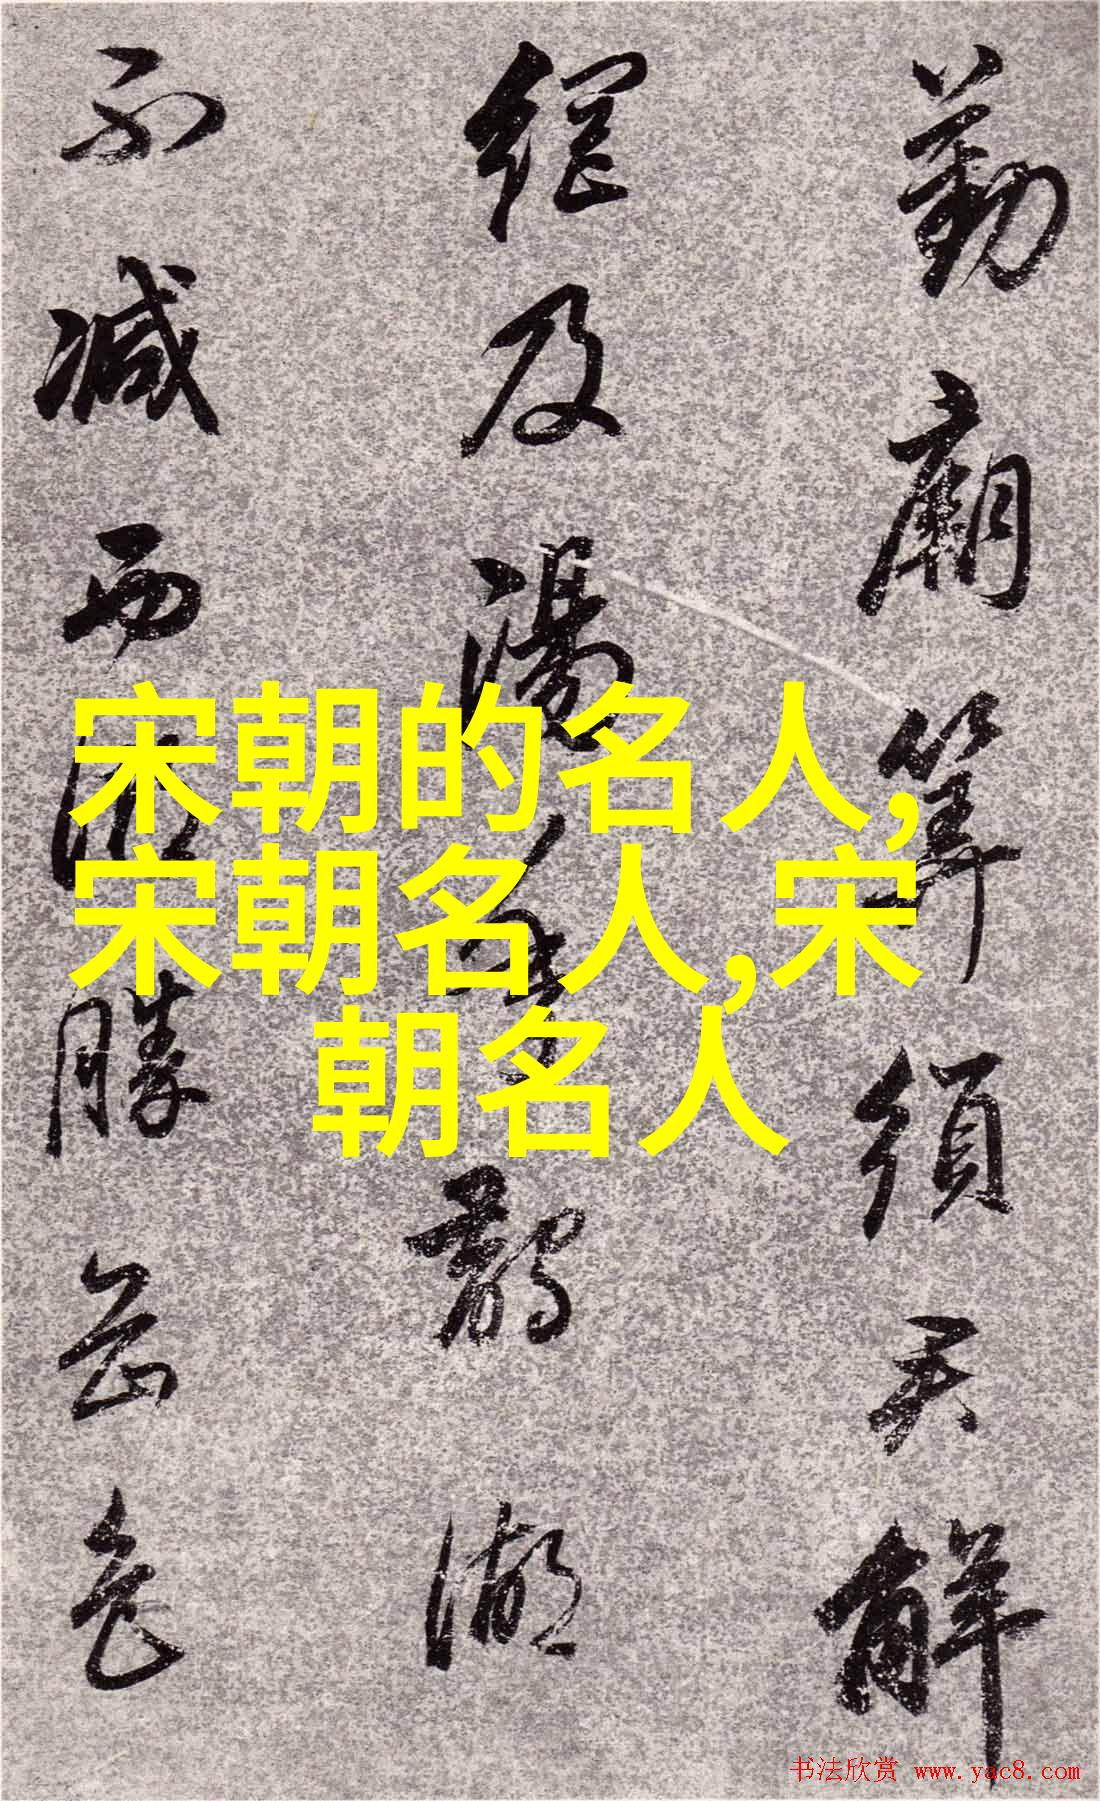 宋朝的名人,
宋朝名人,宋
朝名人
勤廟算須君解
網及湯年鵲湖
不減西湖勝色
书法欣赏 www.yac8.com